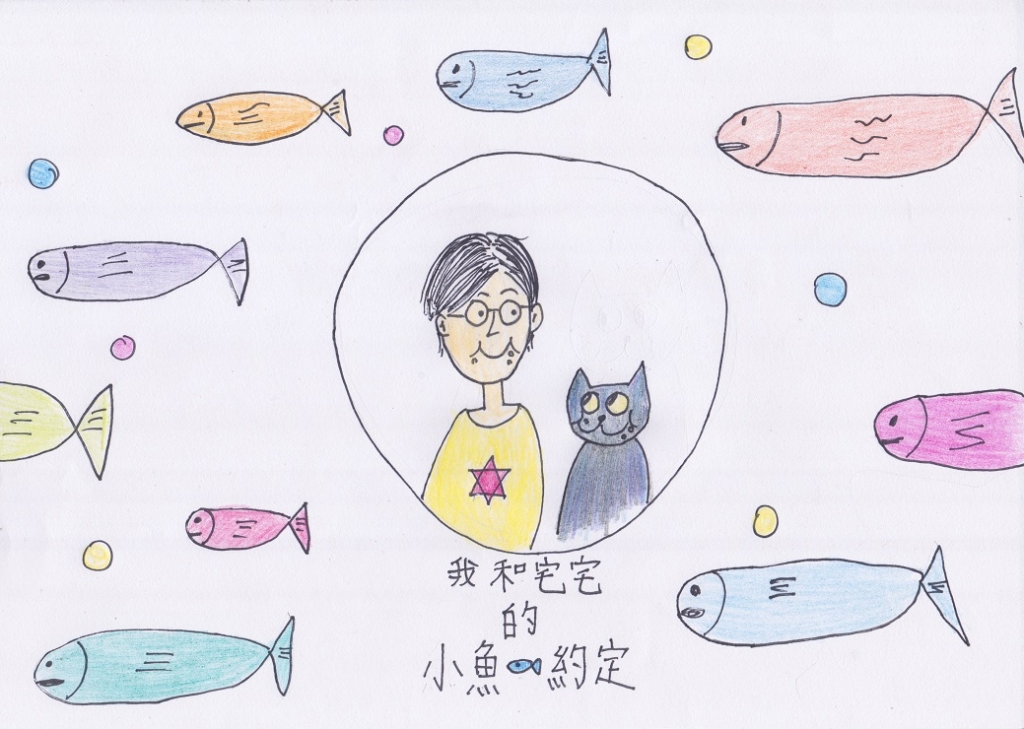 我和宅宅
的
小魚約定